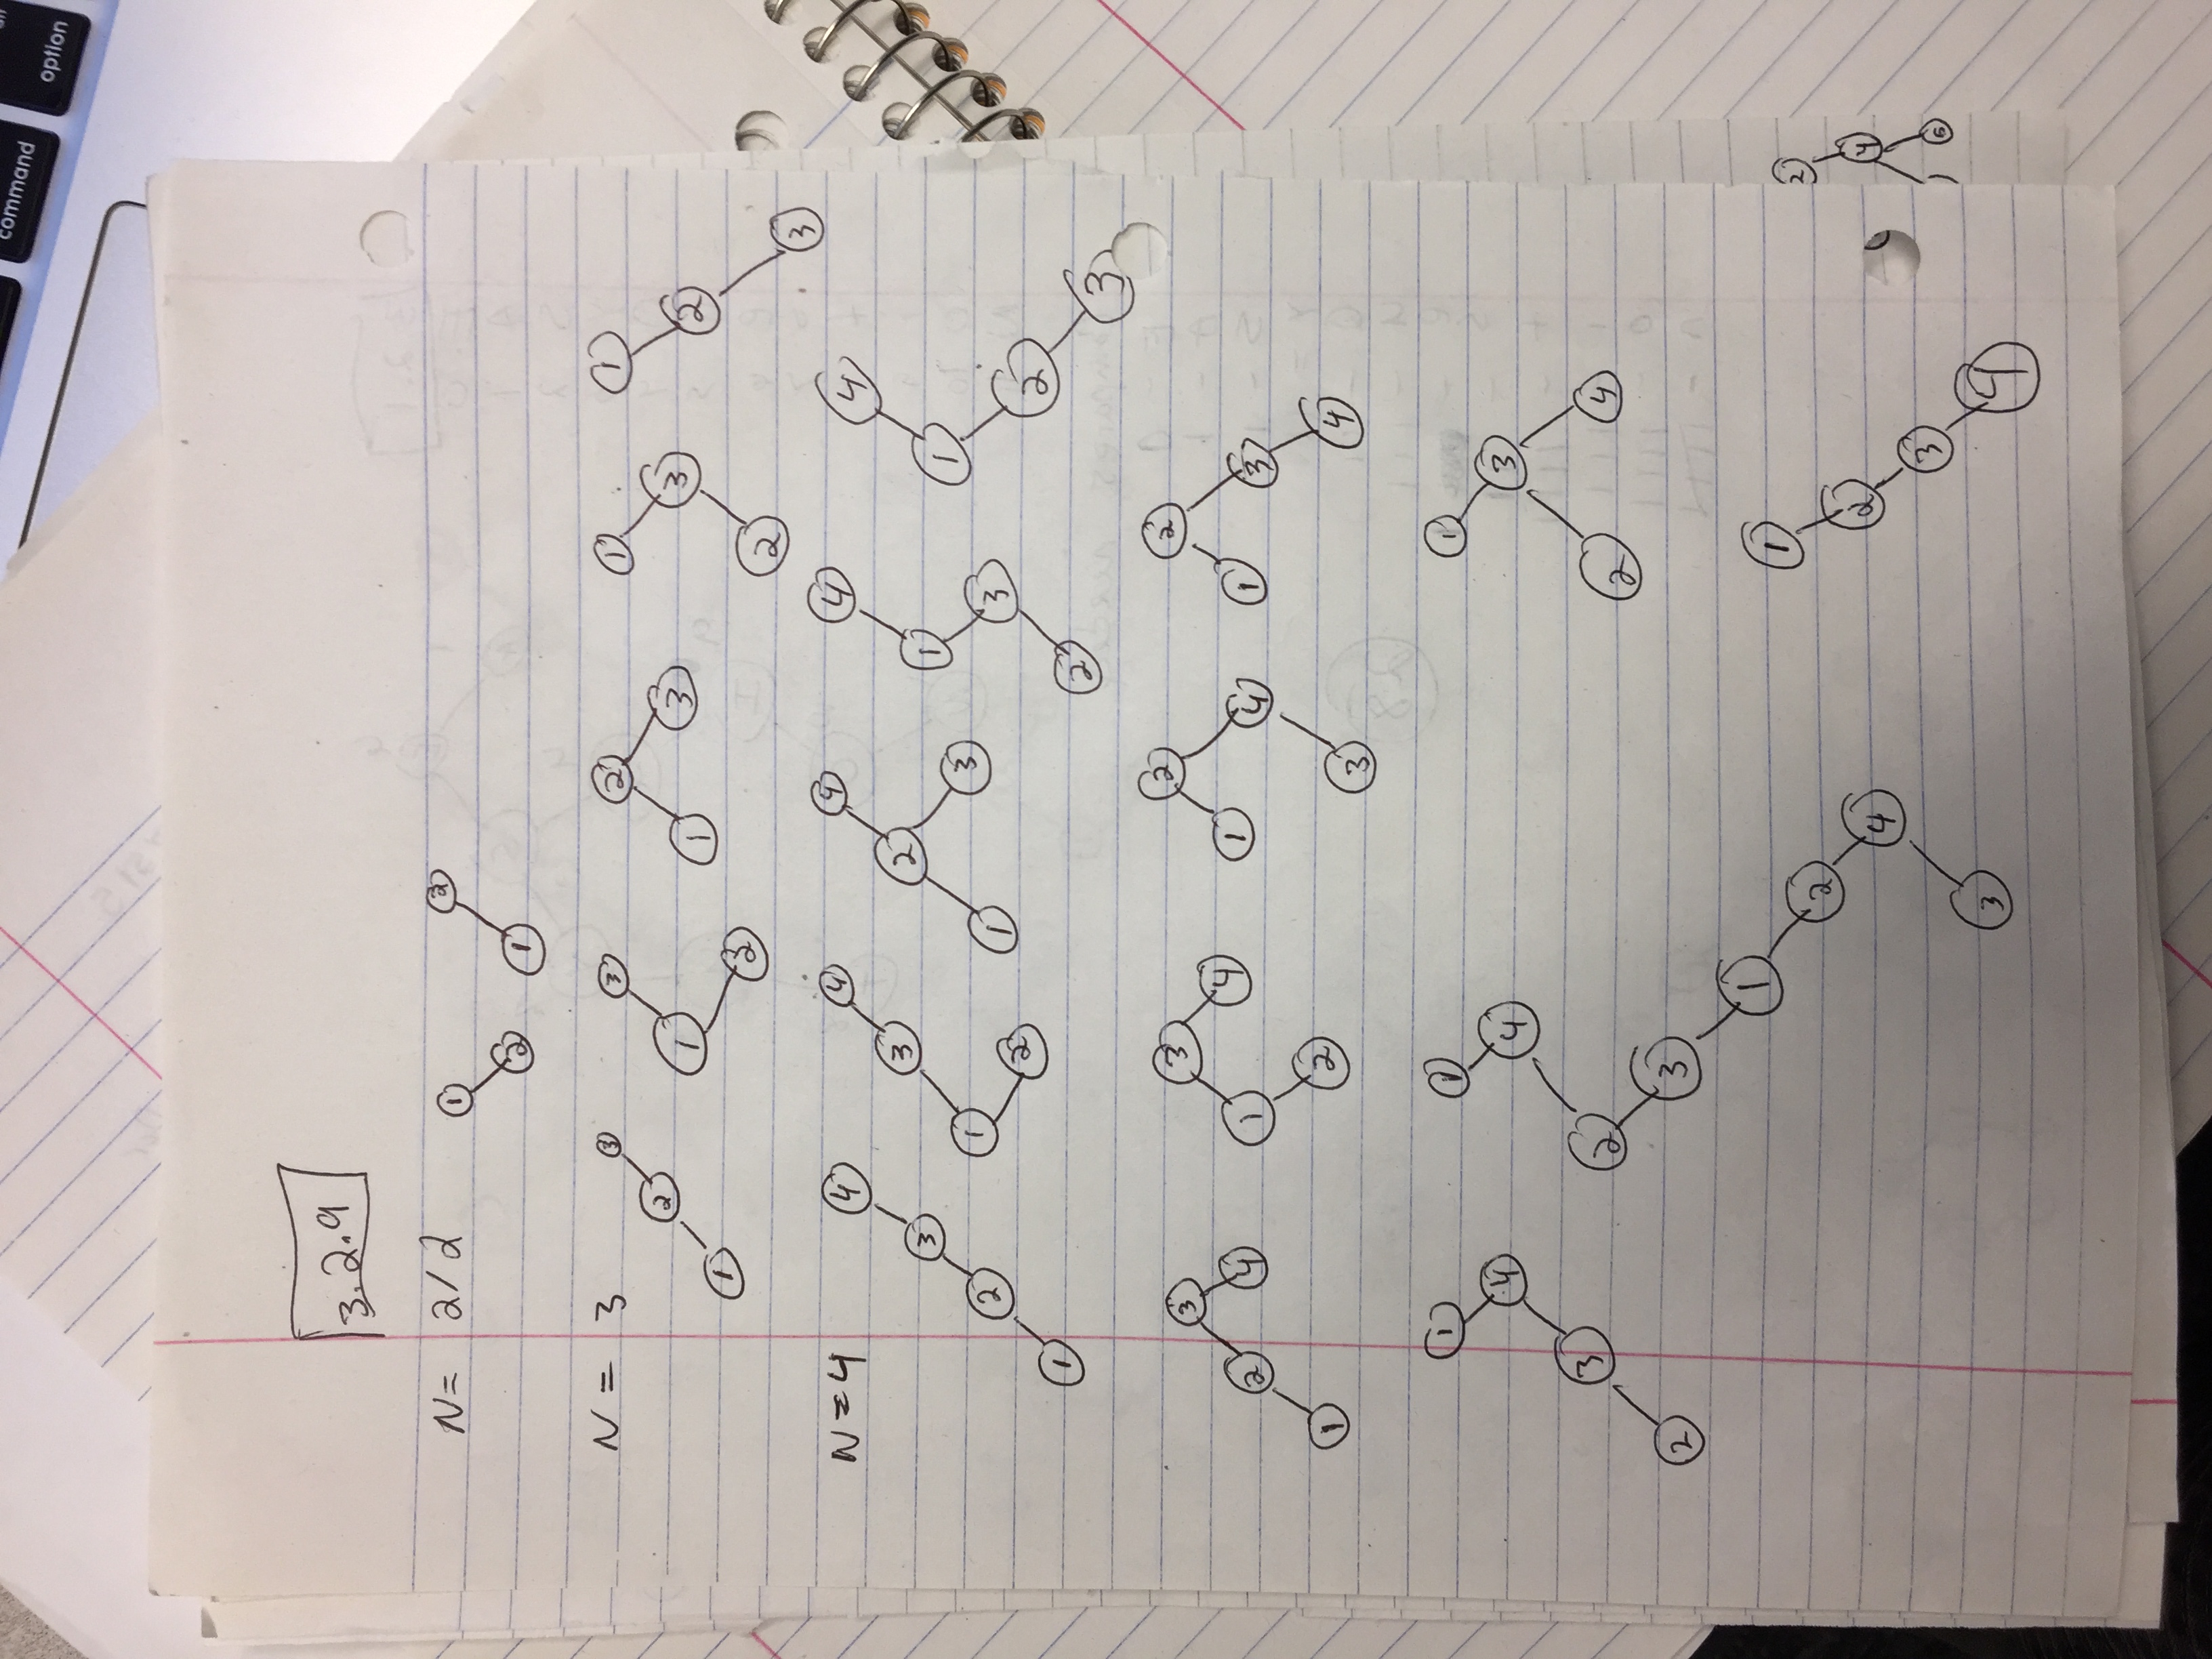 command
option
3.2.9
N= 2/2 1 2 2 1
N = 3 3 2 1 3 1 2 2 1 3 1 3 2 1 2 3
N=4 4 3 2 1 4 3 1 2 4 2 1 3 4 1 3 2 4 1 2 3
3 2 4 1 3 1 4 2 2 1 4 3 2 1 3 4
1 4 3 2 1 4 2 3 1 2 4 3 1 3 2 4
1 2 3 4
2 4